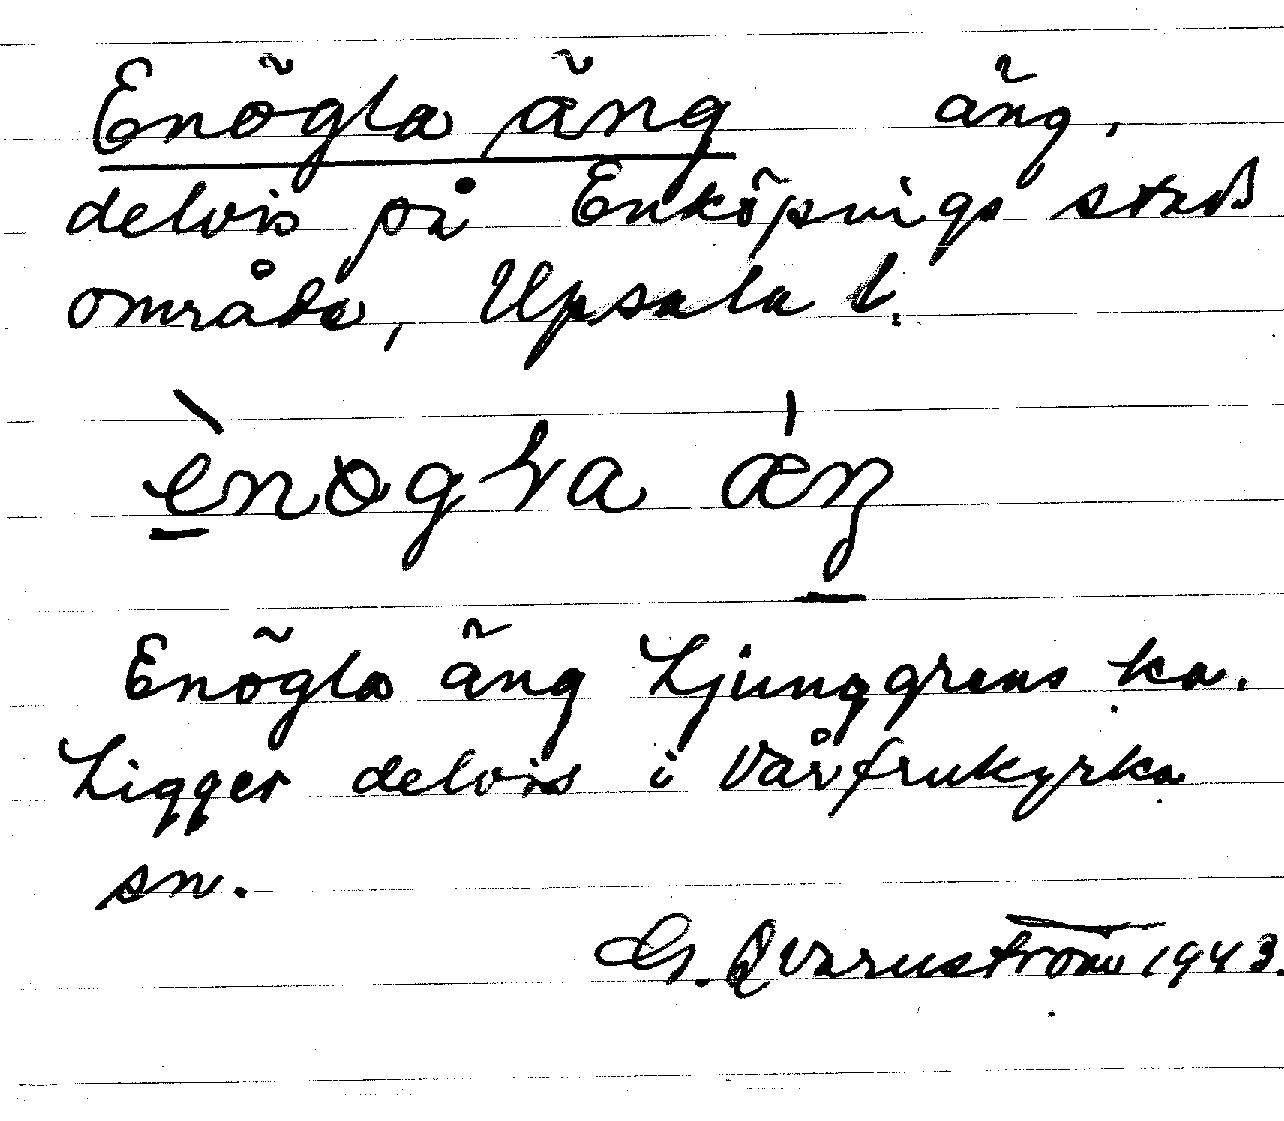 Enögla äng äng,
delvis på Enköpings stads
område, Upsala l.
ènøgla ǽŋ
Enögla äng Ljunggrens ka.
Ligger delvis i Vårfrukyrka
sn.
G. Qvarnström 1943.